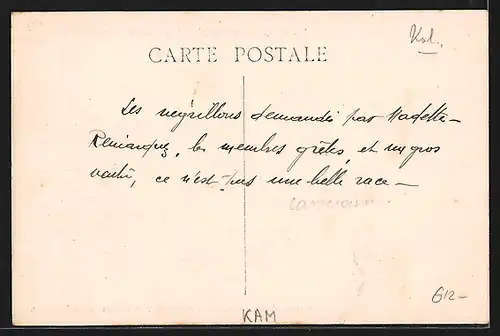 Kol.
CARTE POSTALE
Les négrillons demandés par Nadette —
Remarquez, les membres grêles, et un gros
ventre, ce n'est pas une belle race —
Cameroun
612 —
KAM